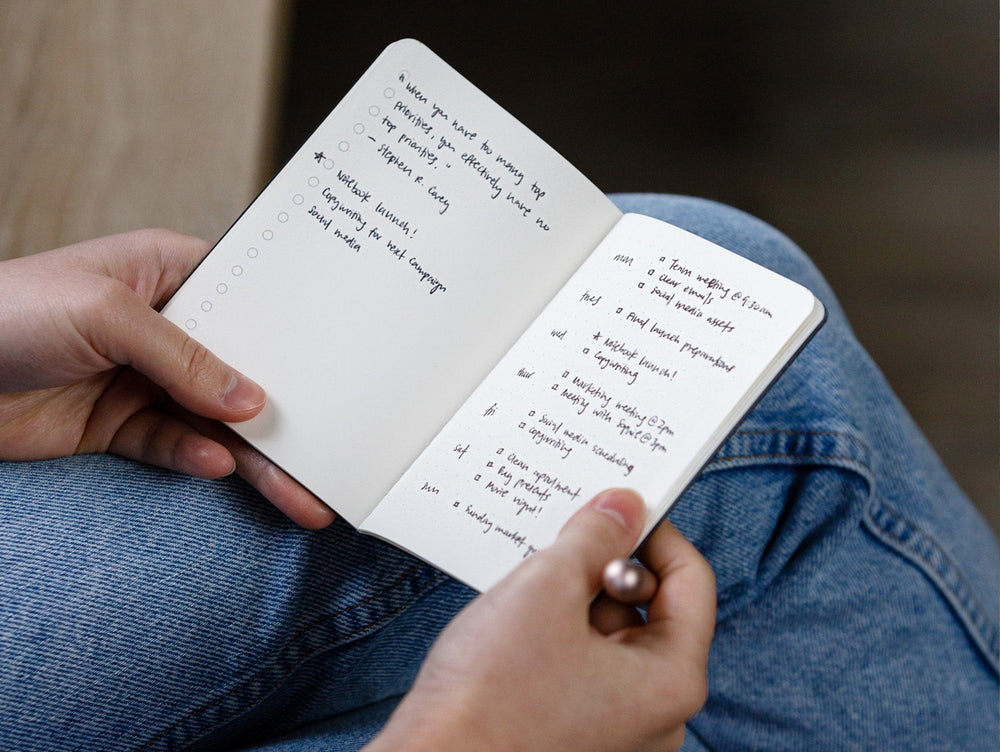 "When you have too many top
priorities, you effectively have no
top priorities."
— Stephen R. Covey
★ Notebook launch!
Copywriting for next campaign
Social media
mon
Team meeting @ 9:30am
Clear emails
Social media assets
tues
Final launch preparations
wed
★ Notebook launch!
Copywriting
thur
Marketing meeting @ 2pm
Meeting with @ 3pm
fri
Social media scheduling
Copywriting
sat
Clean apartment
Buy presents
Movie night!
sun
Sunday market